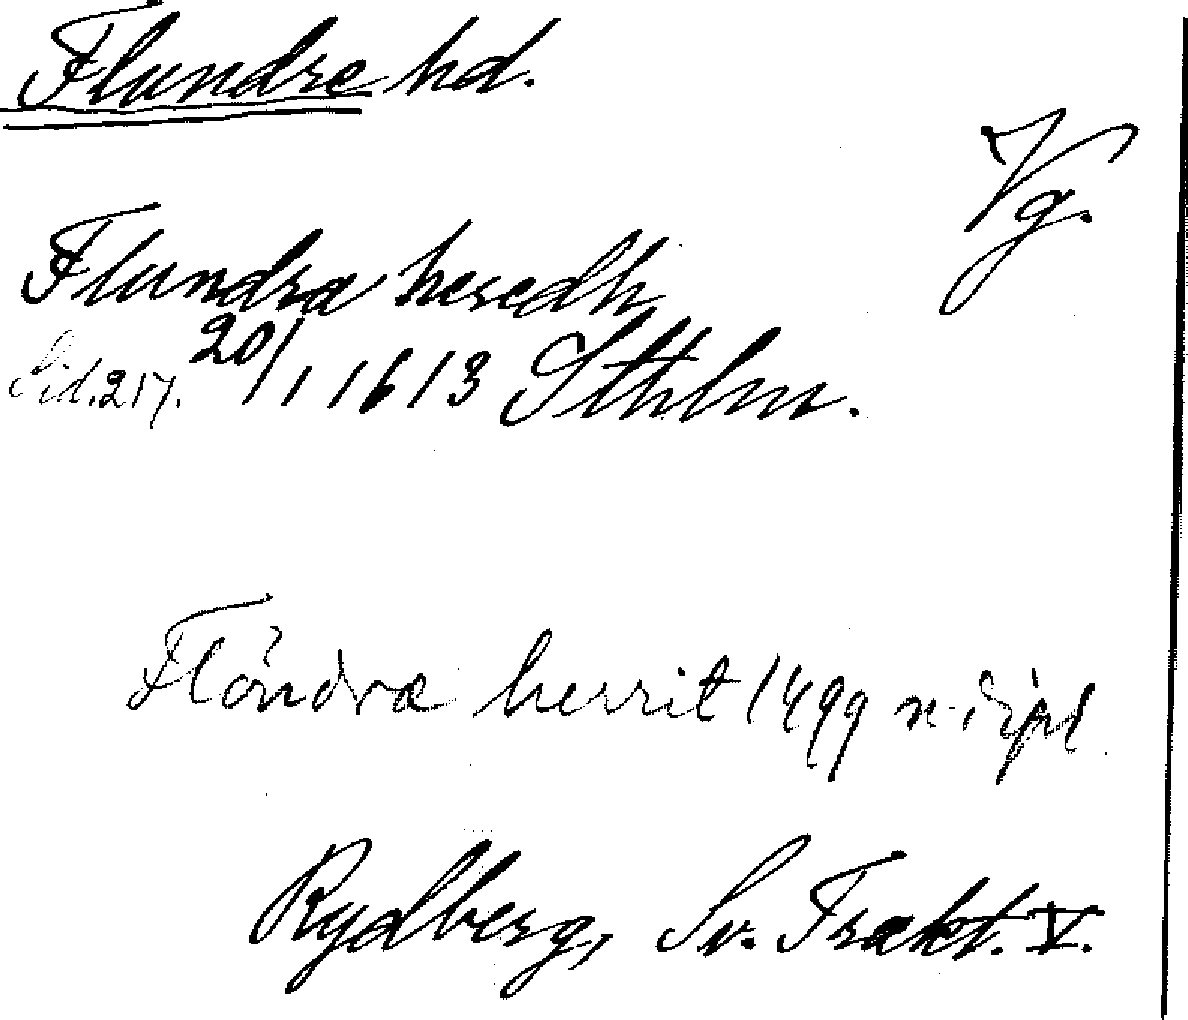 Flundre hd.
Vg.
Flundra heredh
Sid. 217. 20/1 1613 Sthlm.
Flöndræ herrit 1499 n. dipl.
Rydberg, Sv. Trakt. V.